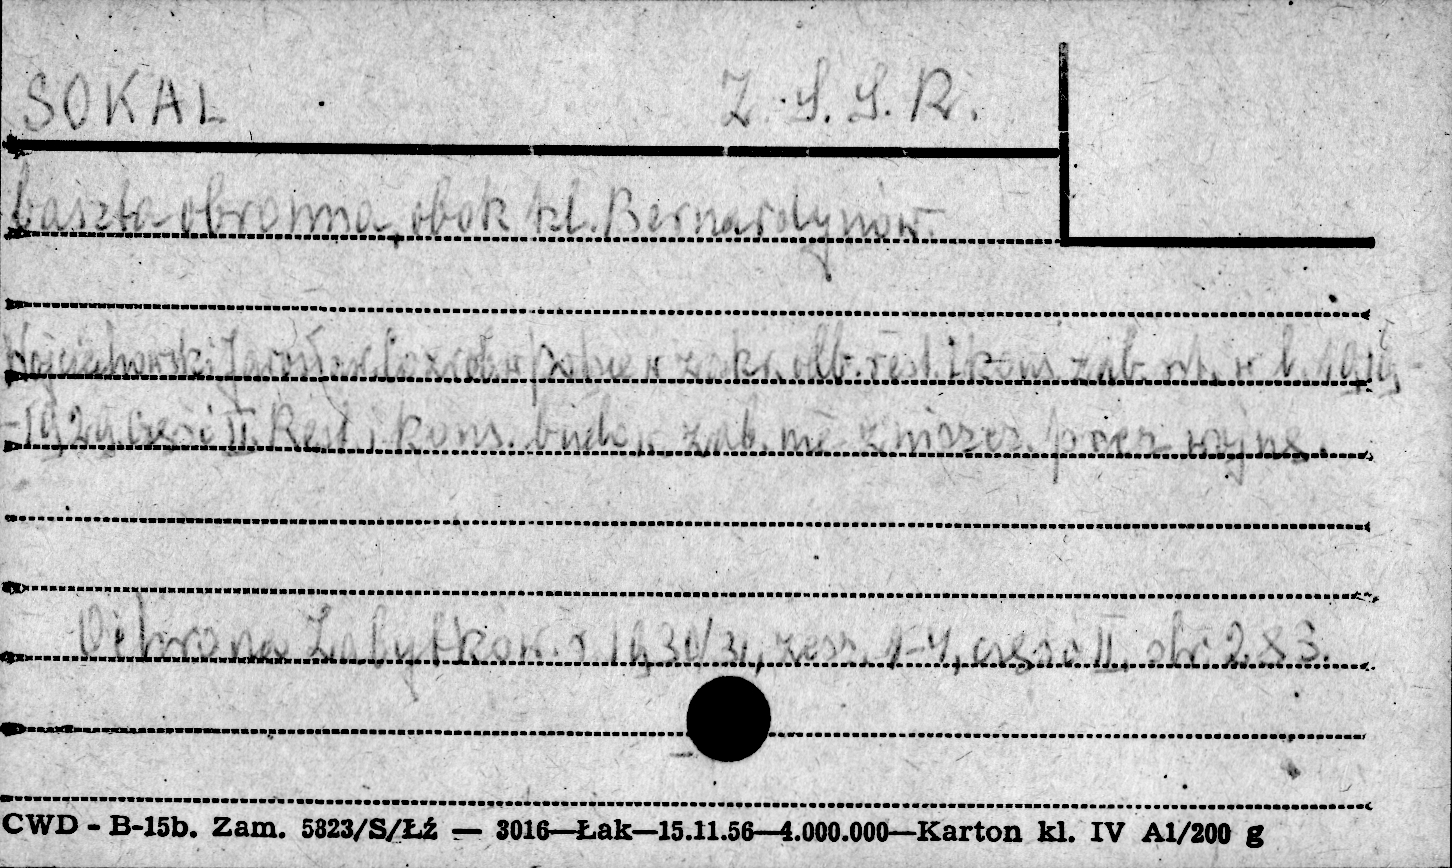 SOKAL Z.S.S.R.
baszta obronna, obok kl. Bernardynów.
Wojciechowski Jarosław Co zrob. w Polsce w zakr. odb. rest. i kons. zab. w l. 1919-
-1929 część II. Rest. i kons. bud. zab. nie zniszcz. przez wojnę.
Ochrona Zabytków. r. 1930/31, zesz. 1-4, część II, str. 283.
CWD - B-15b. Zam. 5823/S/Łź — 3016—Łak—15.11.56—4.000.000—Karton kl. IV A1/200 g